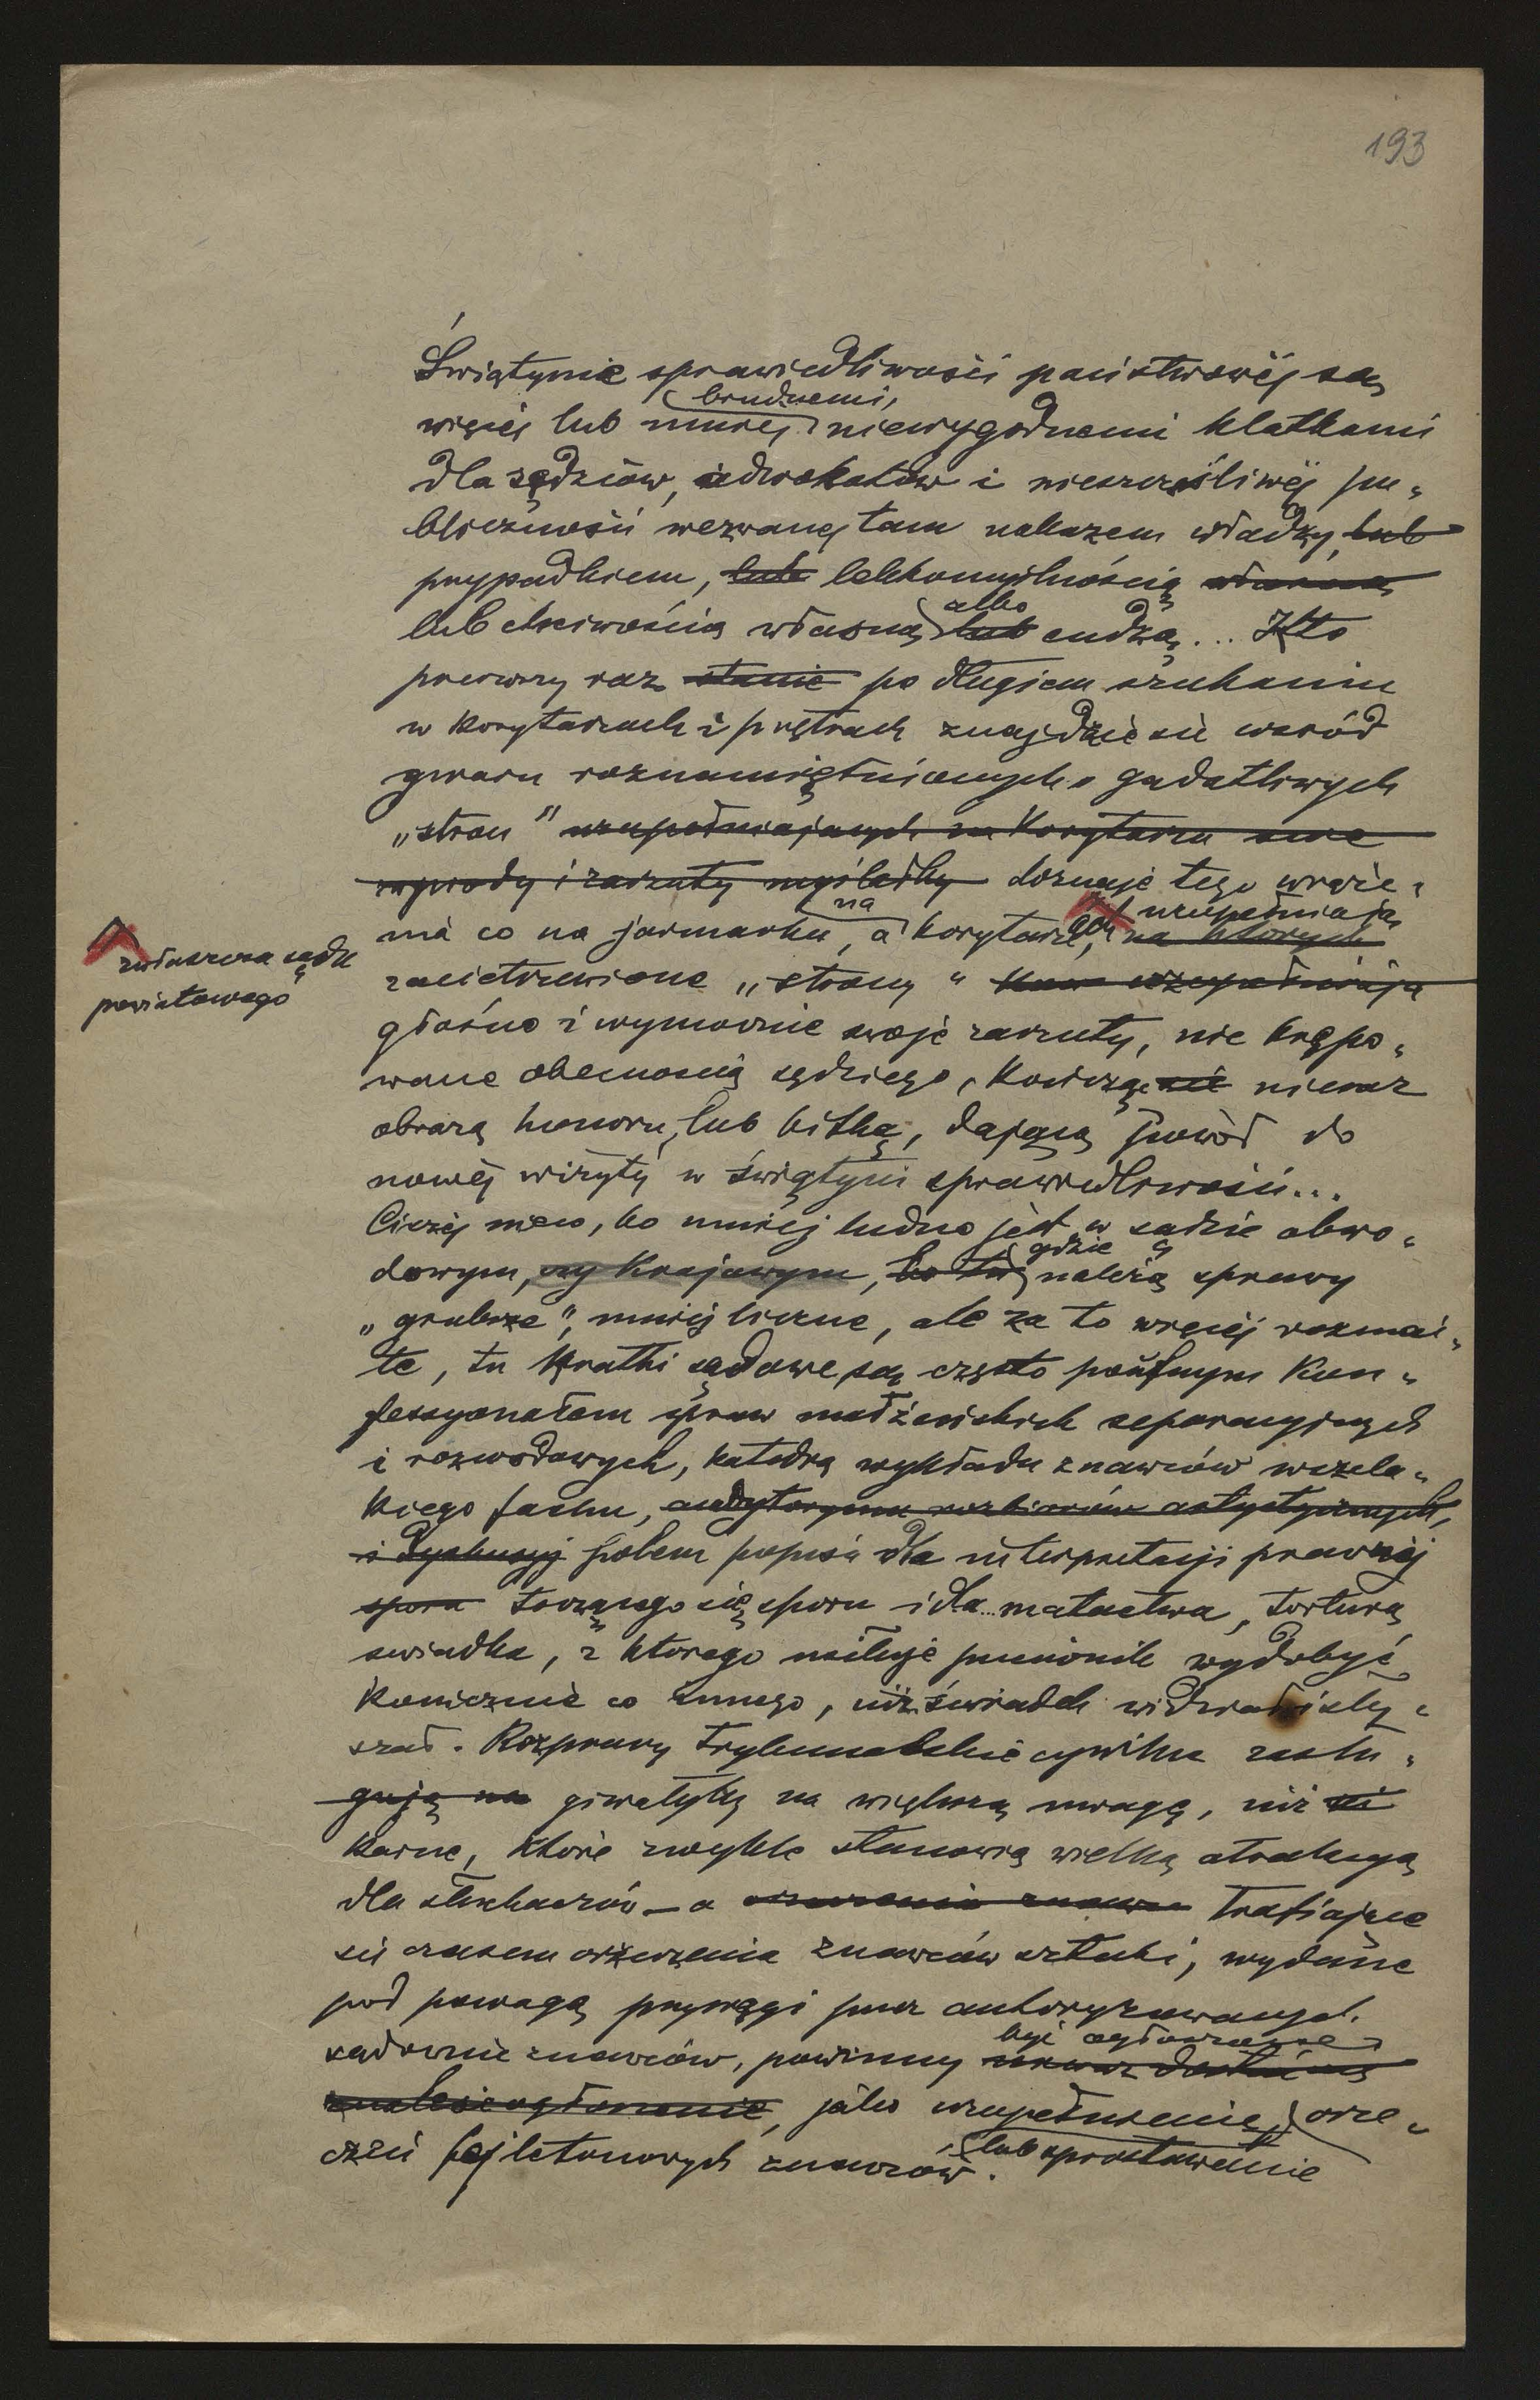 193
Świątynie sprawiedliwości państwowéj są
więcej lub mniej brudnemi, niewygodnemi klatkami
dla sędziów, adwokatów i nieszczęśliwéj pu-
bliczności wezwanej tam nakazem władzy, lub
przypadkiem, lub lekkomyślnością własną
lub chciwością własną lub albo cudzą... Kto
pierwszy raz stanie po długiem szukaniu
w korytarzach i piętrach znajdzie się wśród
gwaru roznamiętnionych, gadatliwych
„stron" uzupełniających na korytarzu swe
wywody i zarzuty myślałby doznaje tego wraże-
nia co na jarmarku, a na korytarzach, na których uzupełniają
zwłaszcza sądu
powiatowego
zacietrzewione „strony" uzupełniają
głośno i wymownie swoje zarzuty, nie krępo-
wane obecnością sędziego, kończąc się nieraz
obrazą honoru, lub bitką, dającą powód do
nowéj wizyty w świątyni sprawiedliwości...
Ciszéj nieco, bo mniej ludno jest w sądzie obwo-
dowym, czy krajowym, bo tu gdzie należą sprawy
„grubsze", mniej liczne, ale za to więcéj rozmai-
te, tu kratki sądowe są często poufnym kon-
fessyonałem spraw małżeńskich separacyjnych
i rozwodowych, katedrą wykładu znawców wszela-
kiego fachu, audytoryum rozbiorów artystycznych,
i dyskusyj polem popisu dla interpretacji prawnéj
sporu toczącego się sporu i dla matactwa, torturą
świadka, z którego usiłuje pieniacz wydobyć
koniecznie co innego, niż świadek widział i sły-
szał. Rozprawy trybunalskie cywilne zasłu-
gują na giwałyby na większą uwagę, niż
karne, które zwykle stanowią wielką atrakcyą
dla słuchaczów – a orzeczenia znawców trafiające
się czasem orzeczenia znawców sztuki, wydane
pod powagą przysięgi przez autoryzowanych
sądownie znawców, powinny być ogłaszane
znaleść ogłoszenie, jako uzupełnienie lub sprostowanie orze-
czeń fejletonowych znawców.